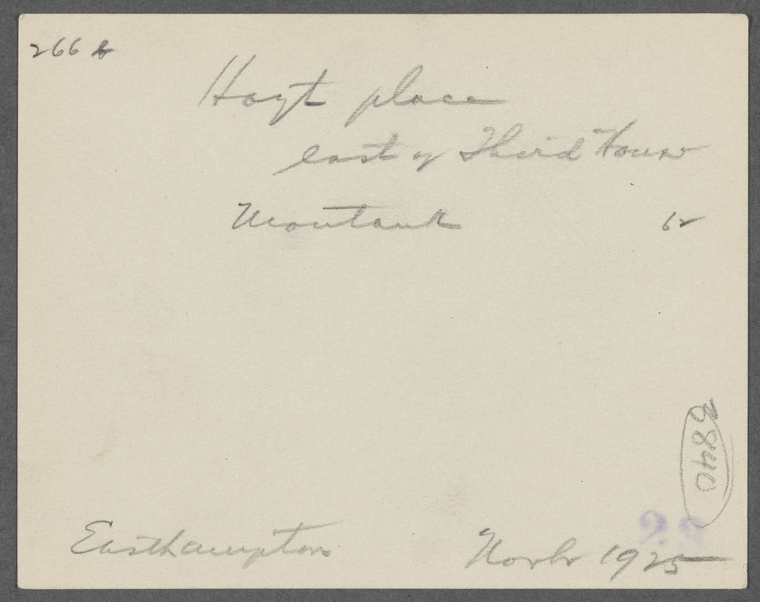 266 b
Hoyt place
east of Third House
Montauk
Easthampton Novbr 1925